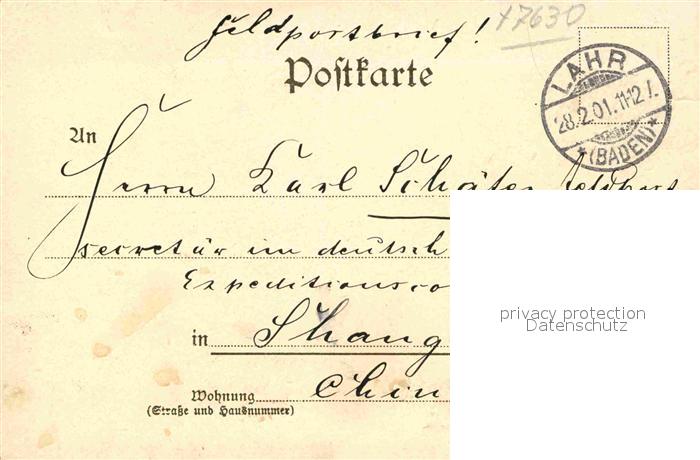 Feldpostbrief!
+7630
Postkarte
LAHR
28.2.01.11-12 V.
* (BADEN) *
An
Herrn Karl Schäfer Feldpost
secretär im deutsch
Expeditionsco
in Shang
Chin
Wohnung
(Straße und Hausnummer)
privacy protection
Datenschutz